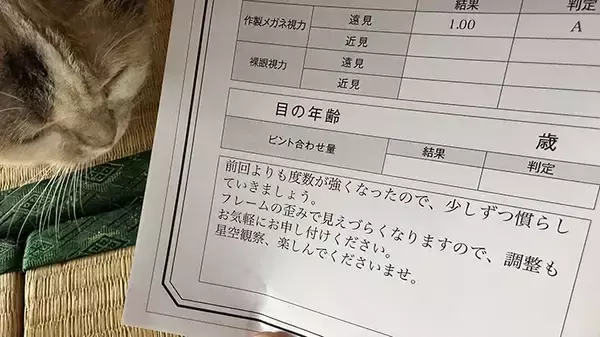 結果 判定
作製メガネ視力 遠見 1.00 A
近見
裸眼視力 遠見
近見
目の年齢 歳
ピント合わせ量 結果 判定
前回よりも度数が強くなったので、少しずつ慣らし
ていきましょう。
フレームの歪みで見えづらくなりますので、調整も
お気軽にお申し付けください。
星空観察、楽しんでくださいませ。